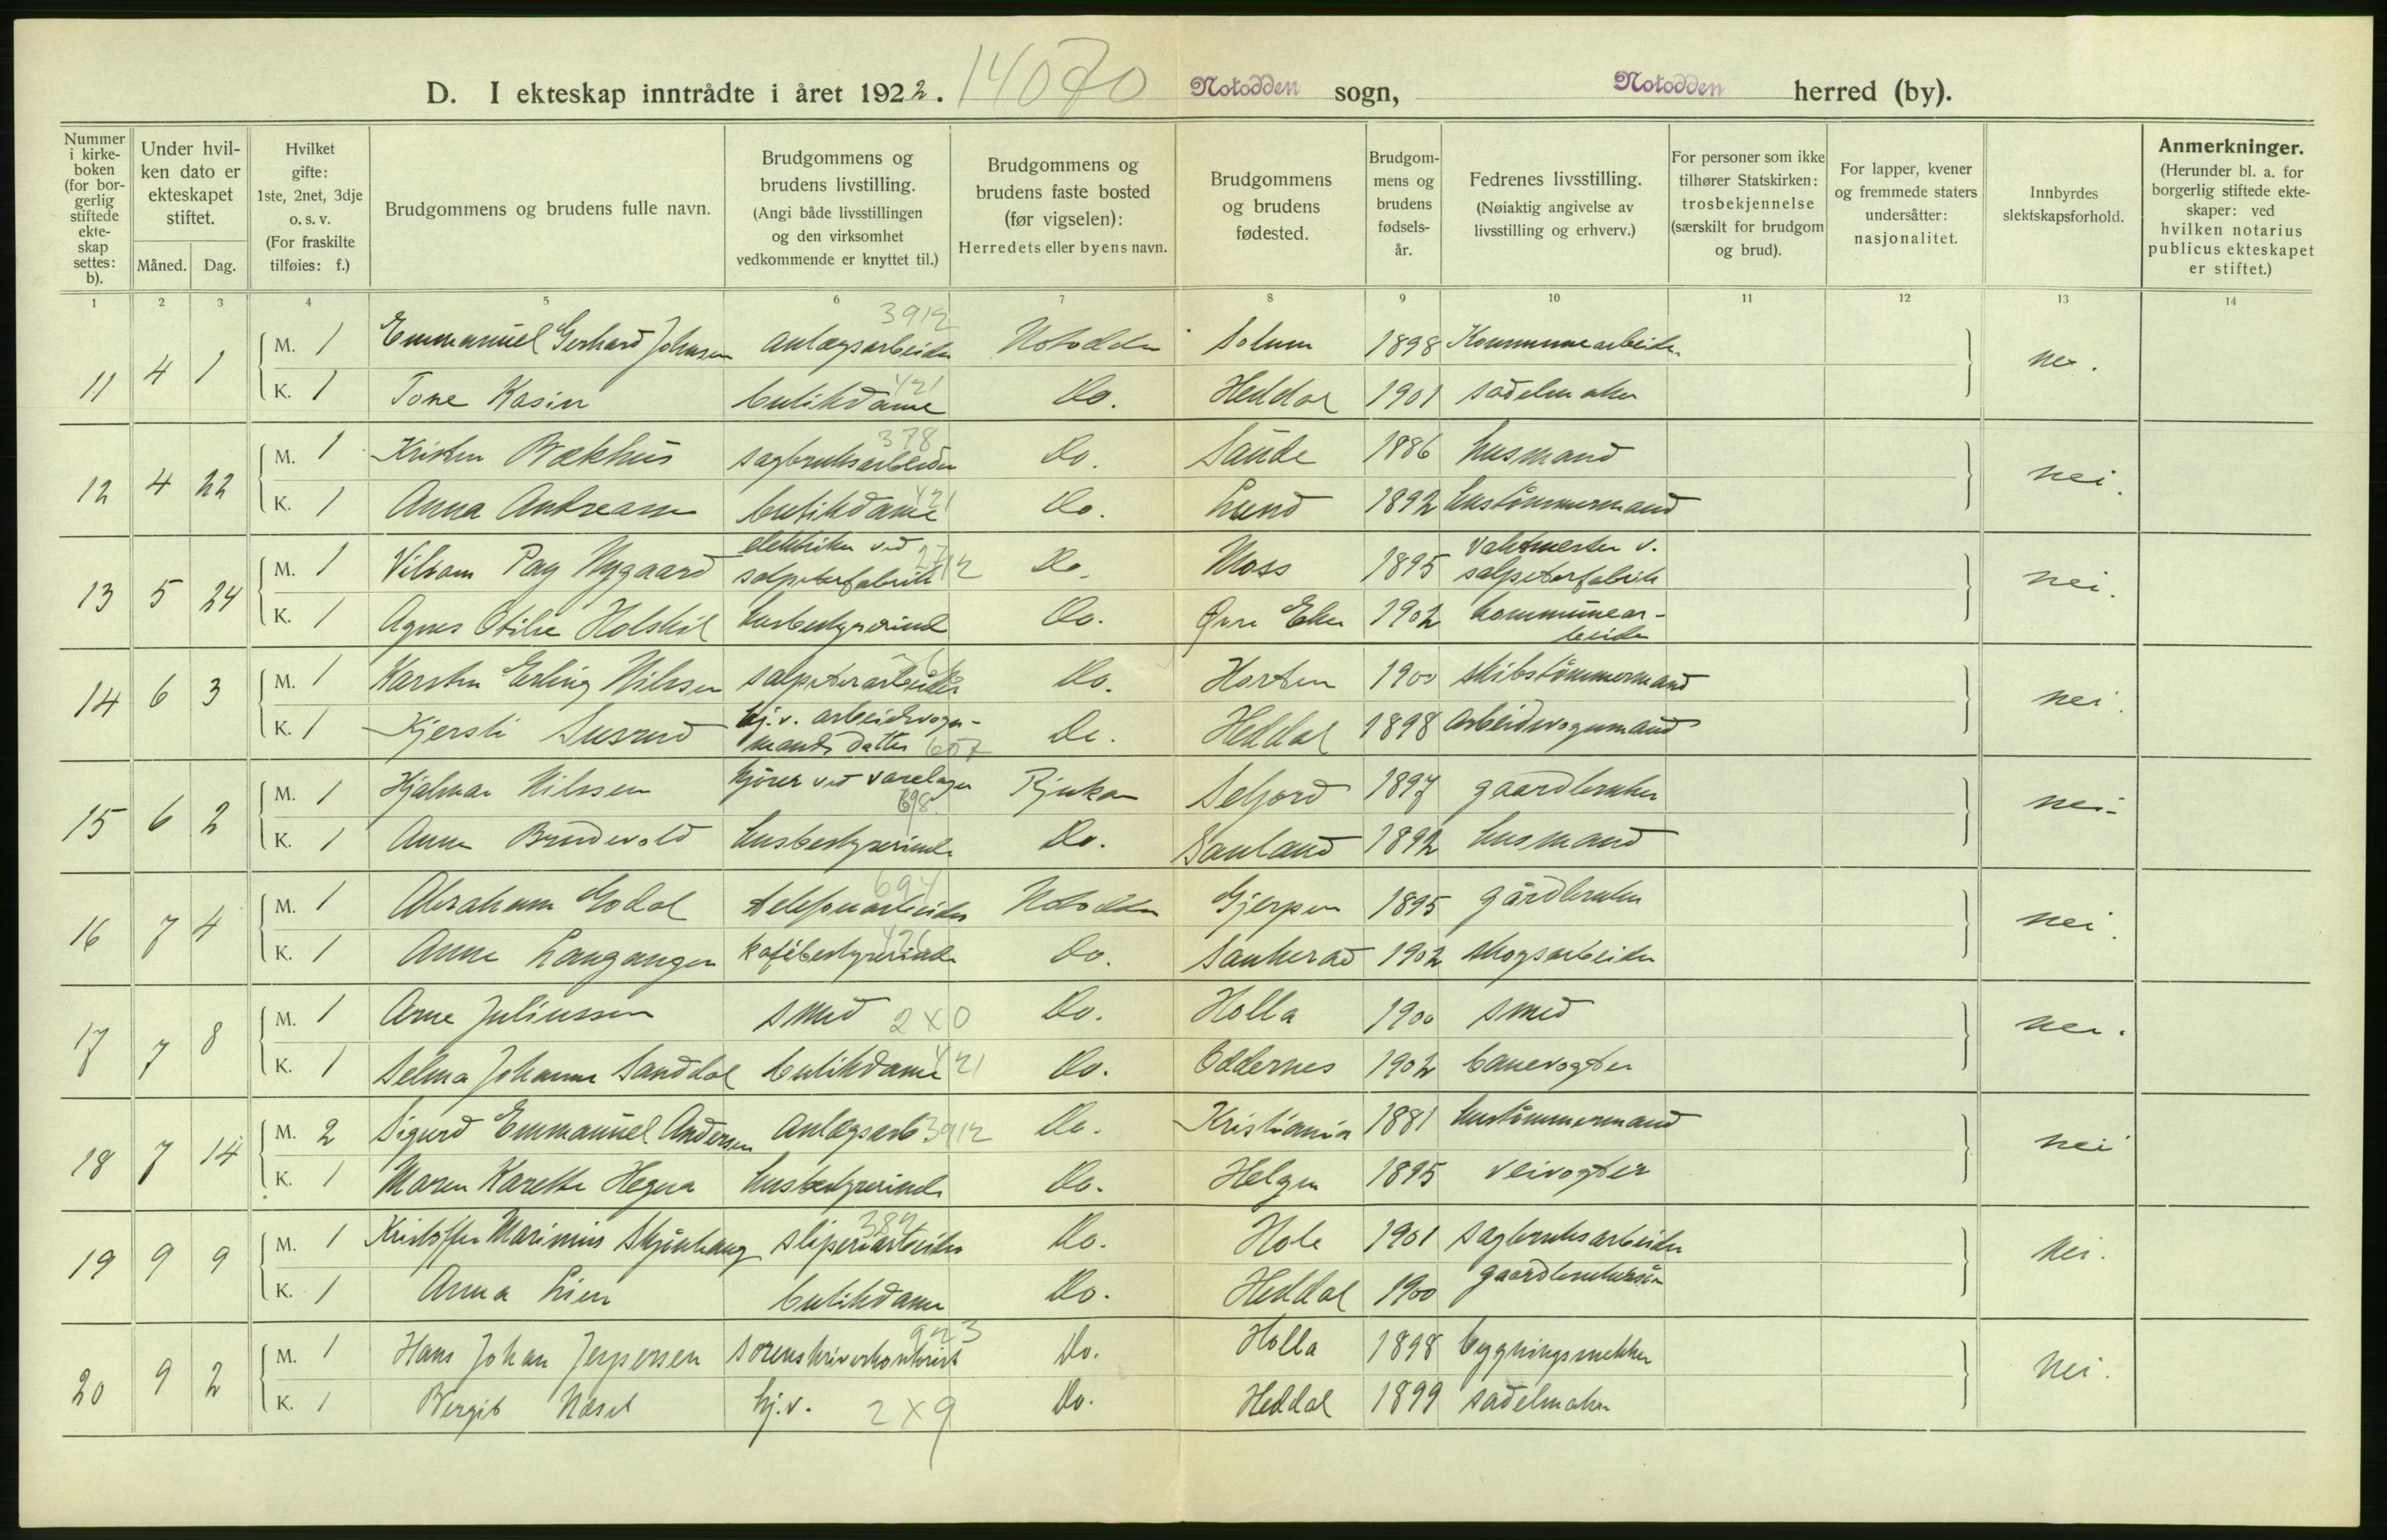 D. I ekteskap inntrådte i året 1922. 14070 Notodden sogn, Notodden herred (by).
Nummer i kirke-boken (for bor-gerlig stiftede ekte-skap settes: b).
Under hvil-ken dato er ekteskapet stiftet.
Måned. Dag.
Hvilket gifte: 1ste, 2net, 3dje o. s. v. (For fraskilte tilføies: f.)
Brudgommens og brudens fulle navn.
Brudgommens og brudens livstilling. (Angi både livsstillingen og den virksomhet vedkommende er knyttet til.)
Brudgommens og brudens faste bosted (før vigselen): Herredets eller byens navn.
Brudgommens og brudens fødested.
Brudgom-mens og brudens fødsels-år.
Fedrenes livsstilling. (Nøiaktig angivelse av livsstilling og erhverv.)
For personer som ikke tilhører Statskirken: trosbekjennelse (særskilt for brudgom og brud).
For lapper, kvener og fremmede staters undersåtter: nasjonalitet.
Innbyrdes slektskapsforhold.
Anmerkninger. (Herunder bl. a. for borgerlig stiftede ekte-skaper: ved hvilken notarius publicus ekteskapet er stiftet.)
1 2 3 4 5 6 7 8 9 10 11 12 13 14
3912
11 4 1 M. 1 Emmanuel Gerhard Johnsen anlægsarbeider Notodden Solum 1898 Kommunearbeider nei.
421
K. 1 Tone Kasin butikdame Do. Heddal 1901 sadelmaker
378
12 4 22 M. 1 Kristen Bækhus sagbruksarbeider Do. Saude 1886 husmand nei.
421
K. 1 Anna Andreasen butikdame Do. Lund 1892 hustømmermand
13 5 24 M. 1 Nygaard elektriker ved salpeterfabrik 2712 Do. Moss 1895 vaktmester v. salpeterfabrik nei.
K. 1 Agnes Otilie Holskil husbestyrerinde Do. Øvre Eker 1902 kommunear-beider
14 6 3 M. 1 Karsten Erling Nilssen salpeterarbeider Do. Horten 1900 skibstømmermand nei.
K. 1 Kjersti Susrud hj.v. arbeidsvogn-mands datter 607 Do. Heddal 1898 arbeidsvognmand
15 6 2 M. 1 Hjalmar Nilssen kjører ved varelager 698 Rjukan Seljord 1897 gaardbruker nei.
K. 1 Anne Brudevold husbestyrerinde Do. Sauland 1892 husmand
694
16 7 4 M. 1 Abraham Godal telefonarbeider Notodden Gjerpen 1895 gårdbruker nei.
K. 1 Anne Langangen kafébestyrerinde Do. Sauherad 1902 skogsarbeider
17 7 8 M. 1 Arne Juliussen smed 2X0 Do. Holla 1900 smed nei.
K. 1 Selma Johanne Sanddal butikdame 421 Do. Oddernes 1902 banevogter
18 7 14 M. 2 Sigurd Emmanuel Andersen anlægsarb. 3912 Do. Kristiania 1881 hustømmermand nei
K. 1 Maren Karethe Hegna husbestyrerinde Do. Helgen 1895 veivogter
382
19 9 9 M. 1 Kristoffer Marinius Skjønhaug sliperiarbeider Do. Hole 1901 sagbruksarbeider nei.
K. 1 Anna Lien butikdame Do. Heddal 1900 gaardbruker
923
20 9 2 M. 1 Hans Johan Jespersen sorenskriverkontorist Do. Holla 1898 bygningssnekker nei.
K. 1 Bergit Næset hj.v. 2X9 Do. Heddal 1899 sadelmaker